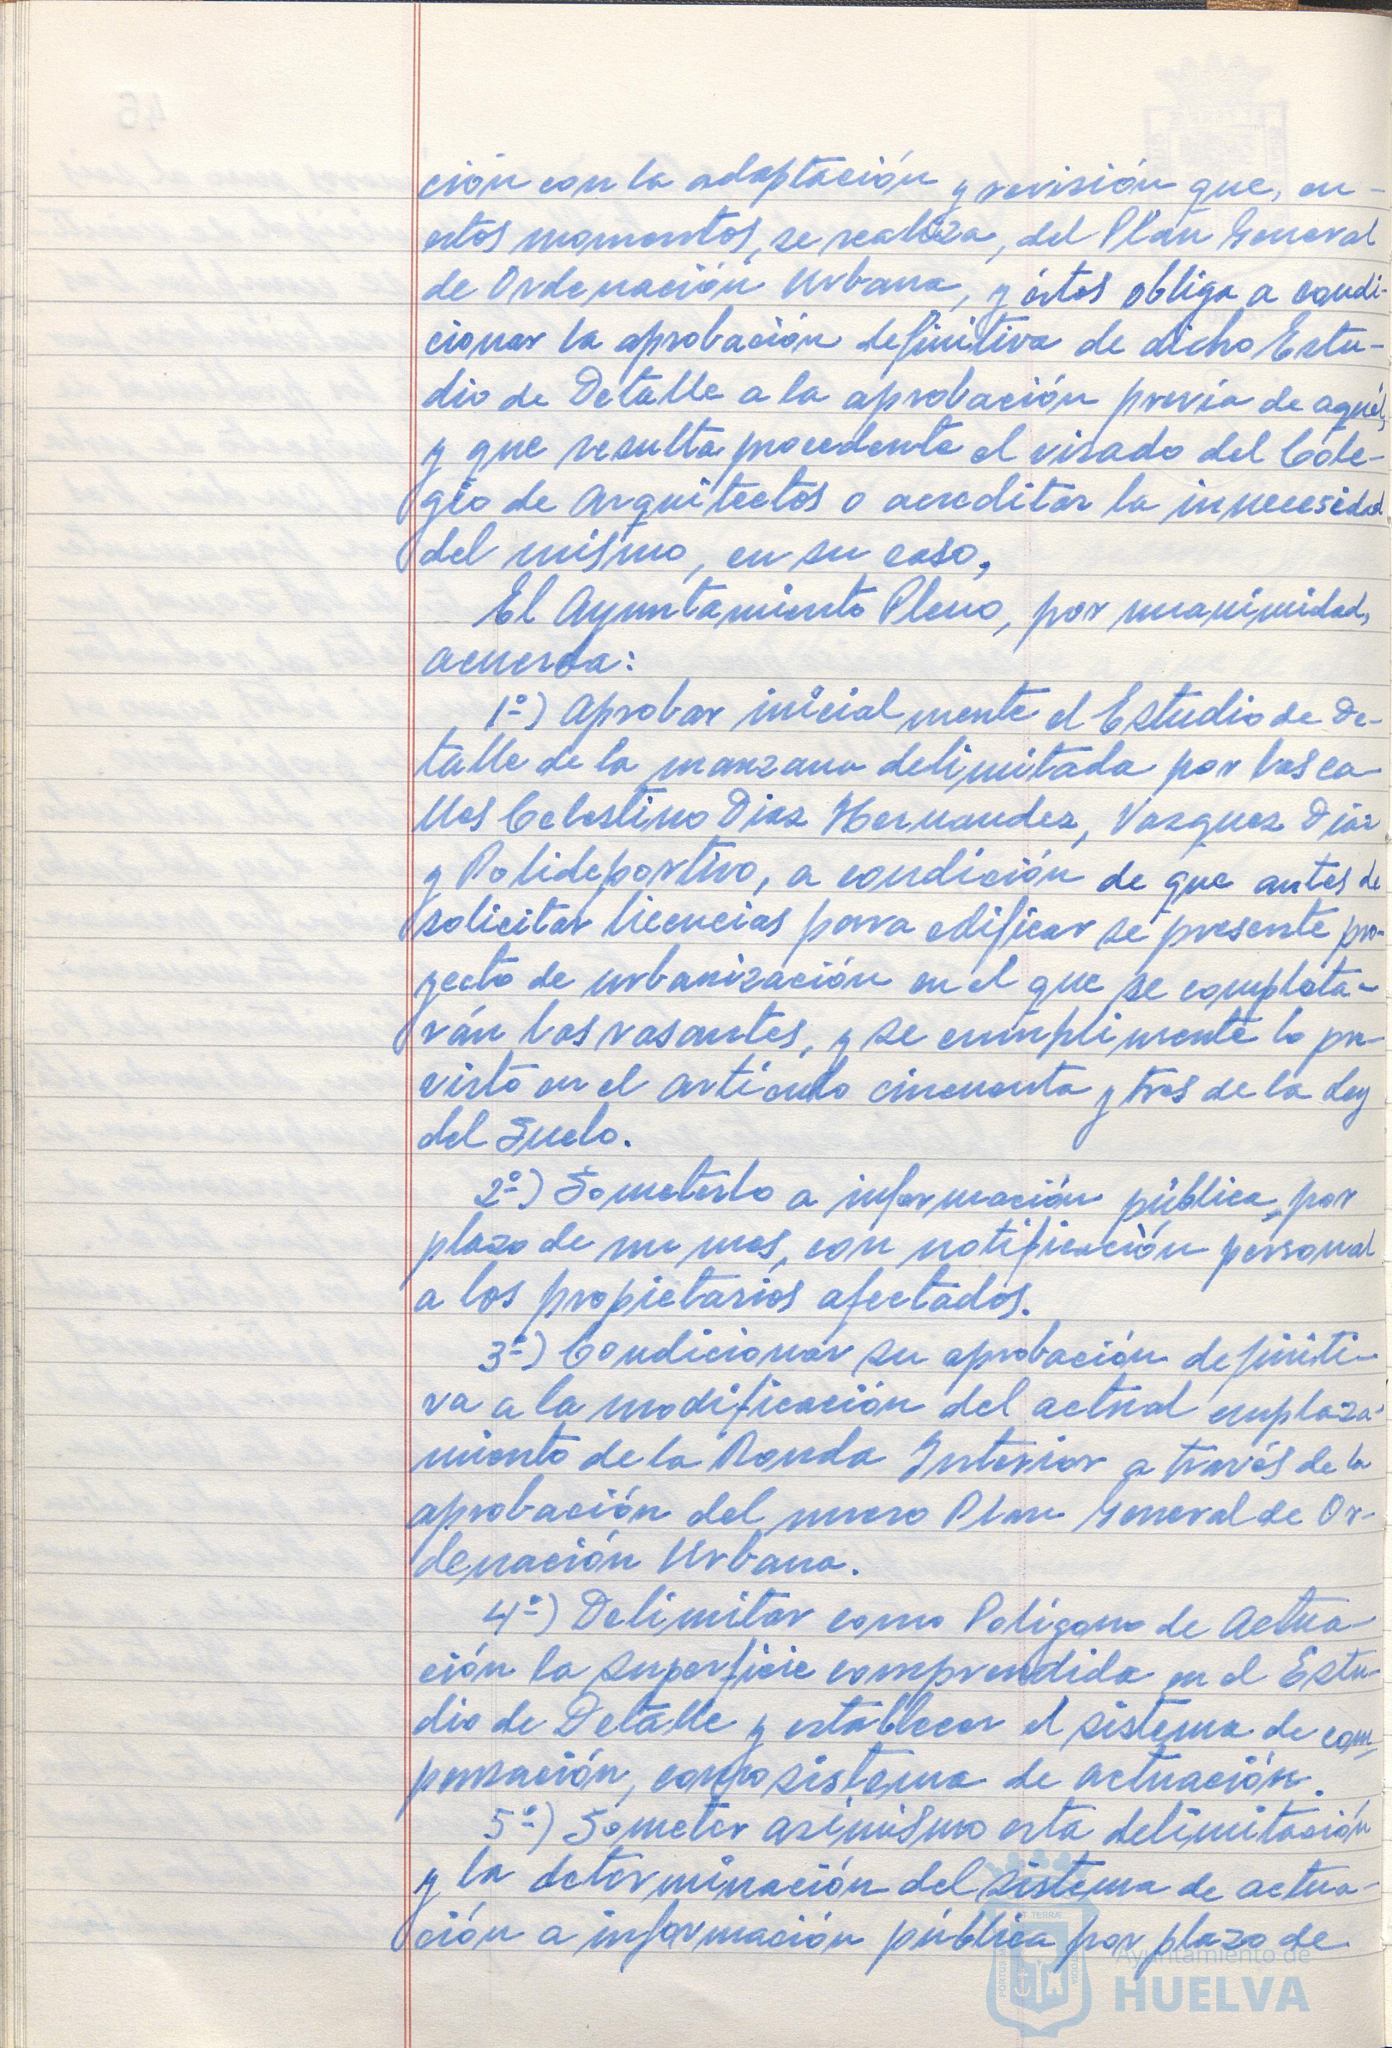 ción con la adaptación y revisión que, en-
estos momentos, se realiza, del Plan General
de Ordenación Urbana, y éstos obliga a condi-
cionar la aprobación definitiva de dicho Estu-
dio de Detalle a la aprobación previa de aquél,
y que resulta procedente el visado del Cole-
gio de Arquitectos o acreditar la innecesidad
del mismo, en su caso,
El Ayuntamiento Pleno, por unanimidad,
acuerda:
1º-) Aprobar inicialmente el Estudio de De-
talle de la manzana delimitada por las ca-
lles Celestino Diaz Hernandez, Vazquez Diaz
y Polideportivo, a condición de que antes de
solicitar licencias para edificar se presente pro-
yecto de urbanización en el que se completa-
rán las rasantes, y se cumplimente lo pre-
visto en el artículo cincuenta y tres de la Ley
del Suelo.
2º-) Someterlo a información pública, por
plazo de un mes, con notificación personal
a los propietarios afectados.
3º-) Condicionar su aprobación definiti-
va a la modificación del actual emplaza-
miento de la Ronda Interior a través de la
aprobación del nuevo Plan General de Or-
denación Urbana.
4º-) Delimitar como Polígono de Actua-
ción la superficie comprendida en el Estu-
dio de Detalle y establecer el sistema de com-
pensación, como sistema de actuación.
5º-) Someter asimismo esta delimitación
y la determinación del sistema de actua-
ción a información pública por plazo de
Ayuntamiento de
HUELVA